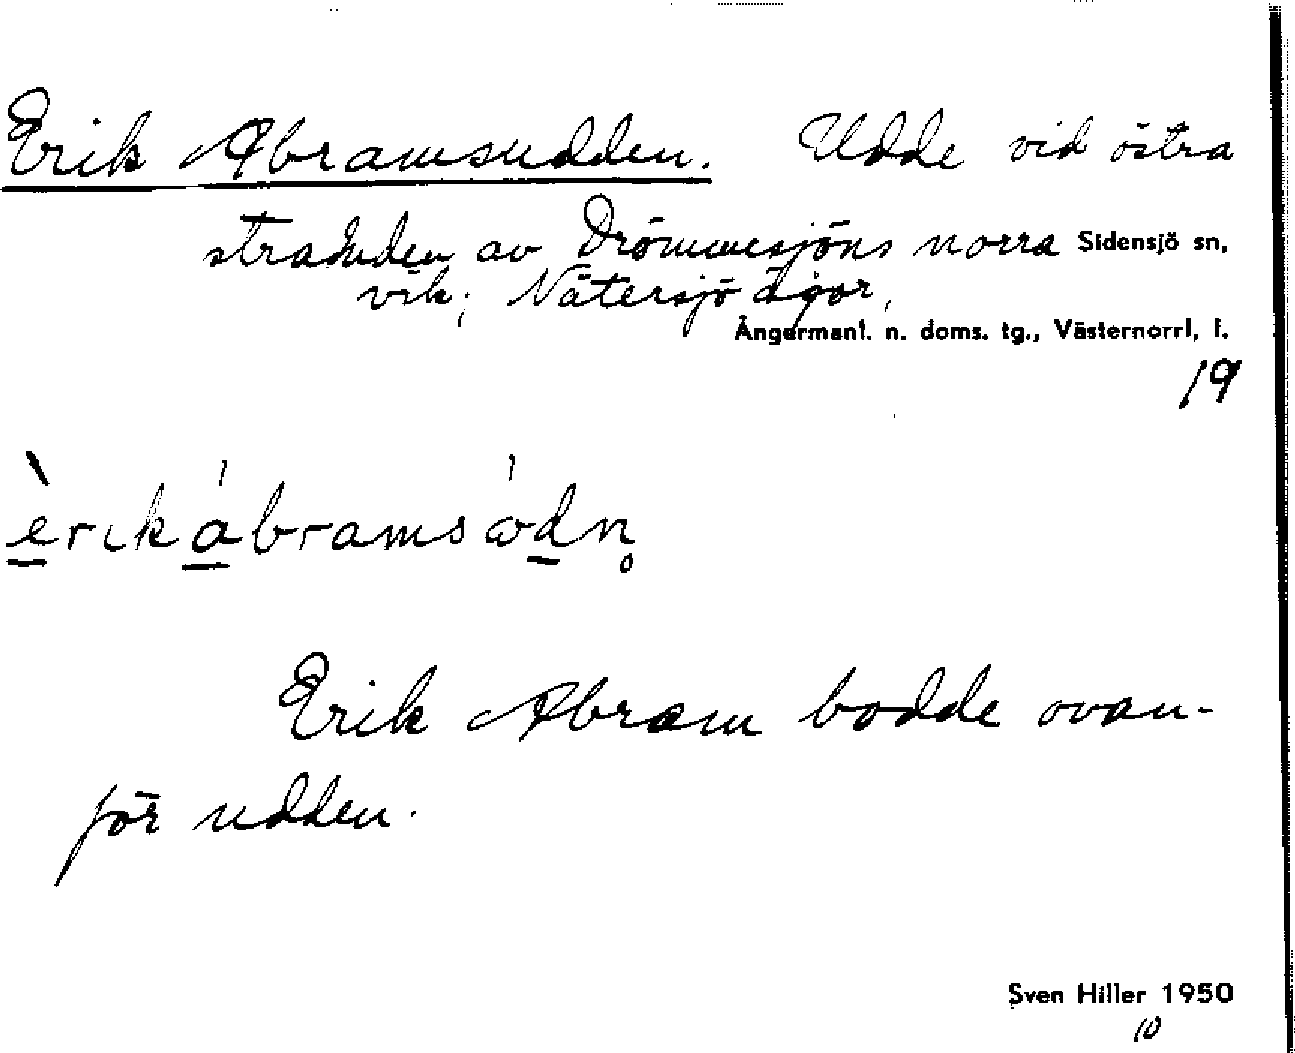 Erik Abramsudden. Udde vid östra
stranden av Drömmesjöns norra Sidensjö sn,
vik; Nätersjö ägor,
Ångermanl. n. doms. tg., Västernorrl. l.
19
èrɩkábramsɷ́dn̥
Erik Abram bodde ovan-
för udden.
Sven Hiller 1950
10